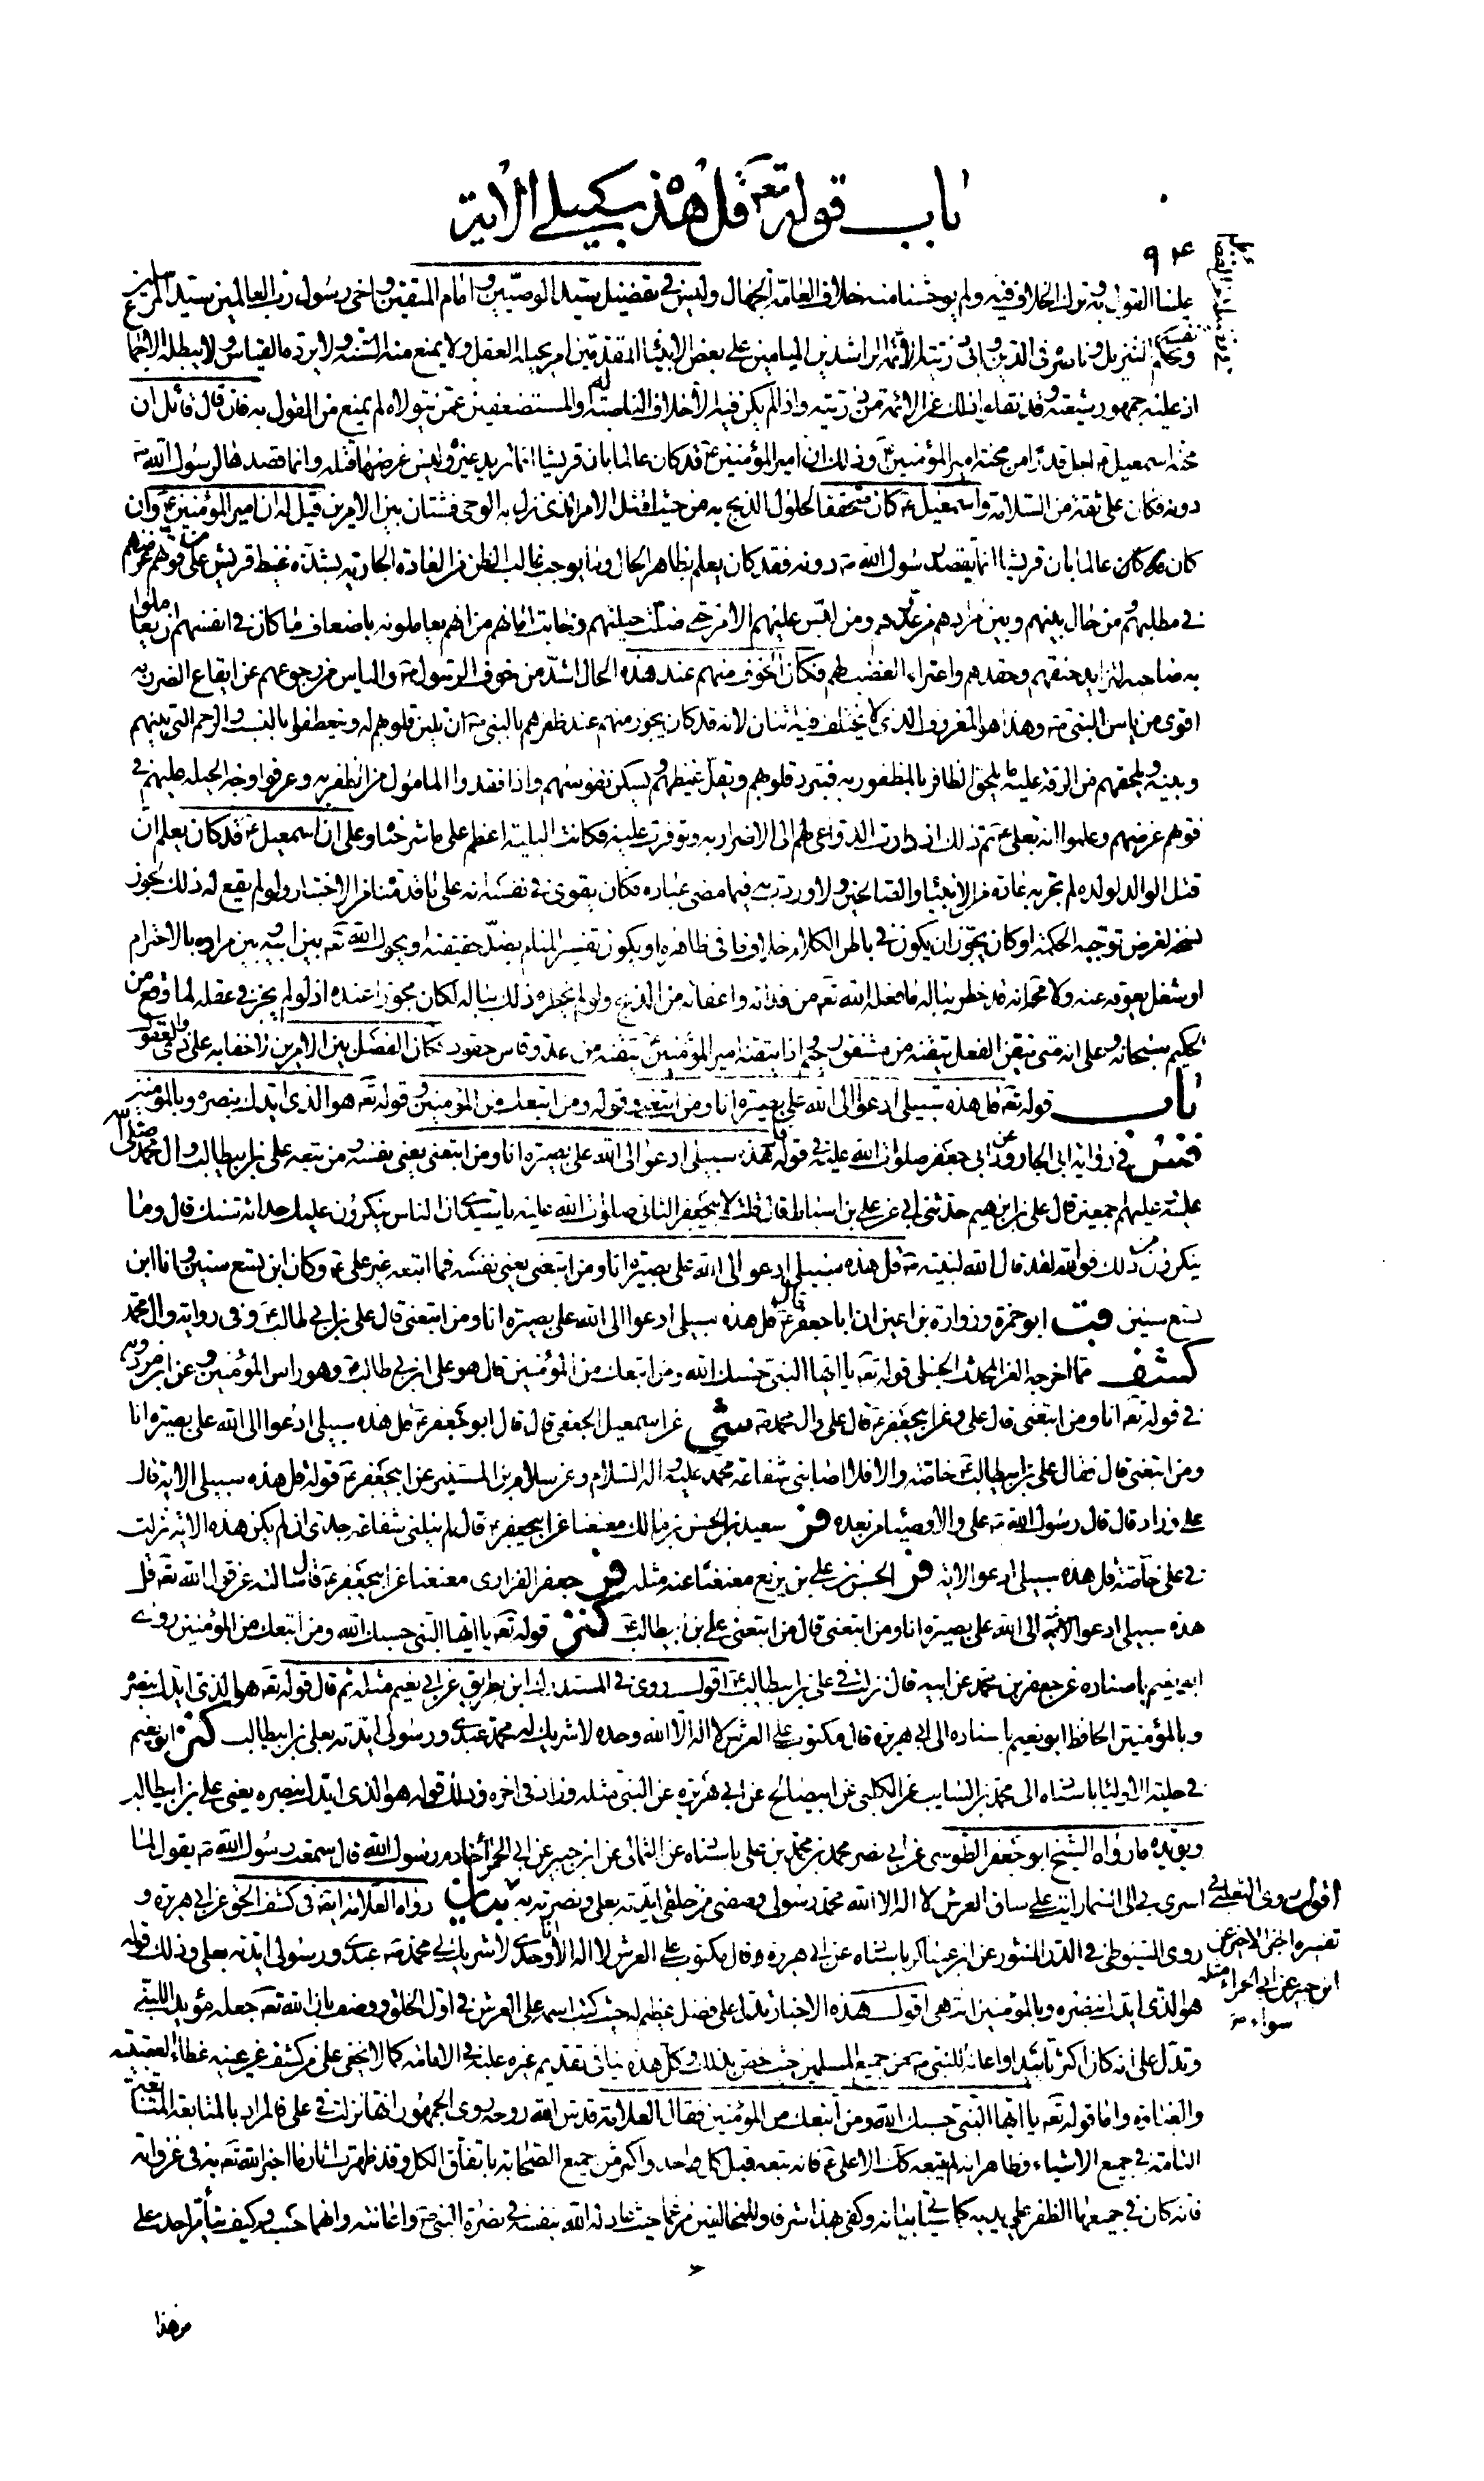 باب قوله تعه قل هذه سبيلي الاية
٩٤
علينا القول به وترك الخلاف فيه ولم يوحشنا منه خلاف العامة الجهال وليس في تفضيل سيد الوصيين وامام المتقين واخي رسول رب العالمين سيد المرسلين
ونفسه بحكم التنزيل وناصره في الدين وابي ذريته الائمة الراشدين الميامين على بعض الانبياء المتقدمين امر يحيله العقل ولا يمنع منه السنة ولا يرده القياس ولا يبطله الاجماع
اذ عليه جمهور شيعته وقد نقلوا ذلك عن الائمة من ذريته واذا لم يكن فيه الا خلاف الناصبة له والمستضعفين ممن يتولاه لم يمنع من القول به فان قال قائل ان
محنة اسمعيل اجل قدرا من محنة امير المؤمنين ع وذلك ان امير المؤمنين ع قد كان عالما بان قريشا انما تريد غيره وليس غرضها قتله وانما قصدها لرسول الله ص
دونه فكان على ثقة من السلامة واسمعيل ع كان متحققا لحلول الذبح به من حيث امتثل الامر الذي نزل به الوحي فشتان بين الامرين قيل له ان امير المؤمنين ع وان
كان عالما بان قريشا انما يقصد رسول الله ص دونه فقد كان يعلم بظاهر الحال وما يوجب غالب الظن من العادة الجارية بشدة غيظ قريش على من فوتهم غرضهم
في مطلوبهم ومن حال بينهم وبين مرادهم من عدوهم ومن لبس عليهم الامر حتى ضلت حيلتهم وخابت امالهم من انهم يعاملونه باضعاف ما كان في انفسهم ان يعاملوا
به صاحبه لتزايد حنقهم وحقدهم واعتراء الغضب لهم فكان الخوف منهم عند هذه الحال اشد من خوف الرسول ص والياس من رجوعهم عن ايقاع الضرر به
اقوى من ياس النبي ص وهذا هو المعروف الذي لا يختلف فيه اثنان لانه قد كان يجوز منهم عند ظفرهم بالنبي ص ان تلين قلوبهم له ويتعطفوا بالنسب والرحم التي بينهم
وبينه ويلحقهم من الرقة عليه ما يلحق الظافر بالمظفور به فتبرد قلوبهم ويقل غيظهم وتسكن نفوسهم واذا فقدوا المامول من الظفر به وعرفوا وجه الحيلة عليهم في
فوتهم غرضهم وعلموا انه بعلي ع تم ذلك ازدادت الدواعي لهم الى الاضرار به وتوفرت عليه فكانت البلية اعظم على ما شرحناه وعلى ان اسمعيل ع قد كان يعلم ان
قتل الوالد لولده لم تجر به عادة من الانبياء والصالحين ولا وردت به فيما مضى عبادة فكان يقوى في نفسه انه على ما قدمناه من الاختبار ولو لم يقع له ذلك لجوز
نسخه لغرض توجبه الحكمة او كان يجوز ان يكون في باطن الكلام خلاف ما في ظاهره او يكون تفسير المنام بضد حقيقته او يحول الله تعه بين ابيه وبين مراده بالاخترام
او شغل يعوقه عنه ولا محالة انه قد خطر بباله ما فعله الله تعه من فدائه واعفائه من الذبح ولو لم يخطر ذلك بباله لكان مجوزا عنده اذ لو لم يجز في عقله لما وقع من
الحكيم سبحانه وعلى انه متى تيقن الفعل تيقنه من مشفق رحيم واذا تيقنه امير المؤمنين ع تيقنه من عدو قاس حقود فكان الفصل بين الامرين لا خفاء به على ذوي العقول
باب قوله تعه قل هذه سبيلي ادعوا الى الله على بصيرة انا ومن اتبعني وقوله ومن اتبعك من المؤمنين وقوله تعه هو الذي ايدك بنصره وبالمؤمنين
فس في رواية ابي الجارود عن ابي جعفر صلوات الله عليه في قوله قل هذه سبيلي ادعوا الى الله على بصيرة انا ومن اتبعني يعني نفسه ومن تبعه علي بن ابيطالب وال محمد صلى الله
عليه وعليهم اجمعين قال علي بن ابرهيم حدثني ابي عن علي بن اسباط قال قلت لابيجعفر الثاني صلوات الله عليه يا سيدي ان الناس ينكرون عليك حداثة سنك قال وما
ينكرون من ذلك فوالله لقد قال الله لنبيه ص قل هذه سبيلي ادعوا الى الله على بصيرة انا ومن اتبعني يعني نفسه فما اتبعه غير علي ع وكان ابن تسع سنين وانا ابن
تسع سنين قب ابو حمزة وزرارة بن اعين ان ابا جعفر ع قال قل هذه سبيلي ادعوا الى الله على بصيرة انا ومن اتبعني قال علي بن ابي طالب ع وفي رواية وال محمد
كشف مما اخرجه العز المحدث الحنبلي قوله تعه يا ايها النبي حسبك الله ومن اتبعك من المؤمنين قال هو علي ابن ابي طالب ع وهو راس المؤمنين وعن ابن مردويه
في قوله تعه انا ومن اتبعني قال علي وعن ابيجعفر ع قال علي وال محمد ص شى عن اسمعيل الجعفي قال قال ابو جعفر ع قل هذه سبيلي ادعوا الى الله على بصيرة انا
ومن اتبعني قال فقال علي بن ابيطالب ع خاصة والا فلا اصابتني شفاعة محمد عليه واله السلام وعن سلام بن المستنير عن ابيجعفر ع قوله قل هذه سبيلي الاية قال
علي وزاد قال قال رسول الله ص علي والاوصياء من بعده فر سعيد بن الحسن بن مالك معنعنا عن ابيجعفر ع قال لم تنلني شفاعة جدي ان لم يكن هذه الاية نزلت
في علي خاصة قل هذه سبيلي ادعوا الاية فر الحسن بن علي بن بزيع معنعنا عنه مثله فر جعفر الفزاري معنعنا عن ابيجعفر ع قال سالته عن قول الله تعه قل
هذه سبيلي ادعوا الى الله على بصيرة انا ومن اتبعني قال من اتبعني علي بن ابيطالب ع كنز قوله تعه يا ايها النبي حسبك الله ومن اتبعك من المؤمنين روى
ابو نعيم باسناده عن جعفر بن محمد عن ابيه قال نزلت في علي بن ابيطالب ع اقول روى في المستدرك ابن بطريق عن ابي نعيم مثله ثم قال قوله تعه هو الذي ايدك بنصره
وبالمؤمنين الحافظ ابو نعيم باسناده الى ابي هريرة قال مكتوب على العرش لا اله الا الله وحده لا شريك له محمد عبدي ورسولي ايدته بعلي بن ابيطالب كنز ابو نعيم
في حلية الاولياء باسناده الى محمد بن السايب عن الكلبي عن ابيصالح عن ابي هريرة عن النبي مثله وزاد في اخره وذلك قوله هو الذي ايدك بنصره يعني علي بن ابيطالب
ويؤيده ما رواه الشيخ ابو جعفر الطوسي عن ابي نصر محمد بن محمد بن علي باسناده عن الثمالي عن ابن جبير عن ابي الحمراء خادم رسول الله قال سمعت رسول الله ص يقول لما
اسري بي الى السماء رايت على ساق العرش لا اله الا الله محمد رسولي وصفيي من خلقي ايدته بعلي ونصرته به بيان رواه العلامة ايضا في كشف الحق عن ابي هريرة و
روى السيوطي في الدر المنثور عن ابن عساكر باسناده عن ابي هريرة قال مكتوب على العرش لا اله الا انا وحدي لا شريك لي محمد ص عبدي ورسولي ايدته بعلي وذلك قوله
هو الذي ايدك بنصره وبالمؤمنين انتهى اقول هذه الاخبار تدل على فضل عظيم له حيث كتب اسمه على العرش في اول الخلق ووصفه بان الله تعه جعله مؤيد النبي
وتدل على انه كان اكثر تاييدا واعانة للنبي ص من جميع المسلمين حيث خص بذلك وكل هذه ينافي تقديم غيره عليه في الامامة كما لا يخفى على من كشف عن عينيه غطاء العصبية
والغباوة واما قوله تعه يا ايها النبي حسبك الله ومن اتبعك من المؤمنين فقال العلامة قدس الله روحه روى الجمهور انها نزلت في علي فالمراد بالمتابعة المتابعة
التامة في جميع الاشياء وظاهر انه لم يتبعه كذلك الا علي ع فانه تبعه قبل كل واحد واكثر من جميع الصحابة باتفاق الكل وقد ظهرت اثار ما اخبر الله تعه به في غزواته
فانه كان في جميعها الظفر على يديه كما سياتي بيانه وكفى بهذا شرفا وللمخالفين مرغما حيث عادله الله بنفسه في نصرة النبي ص واعانته وانهما حسبه وكيف يتامر احد على
من هذا
اقول روى الثعلبي في
تفسيره الاخير عن
ابن جبير عن ابي الحمراء مثله
سواء ص